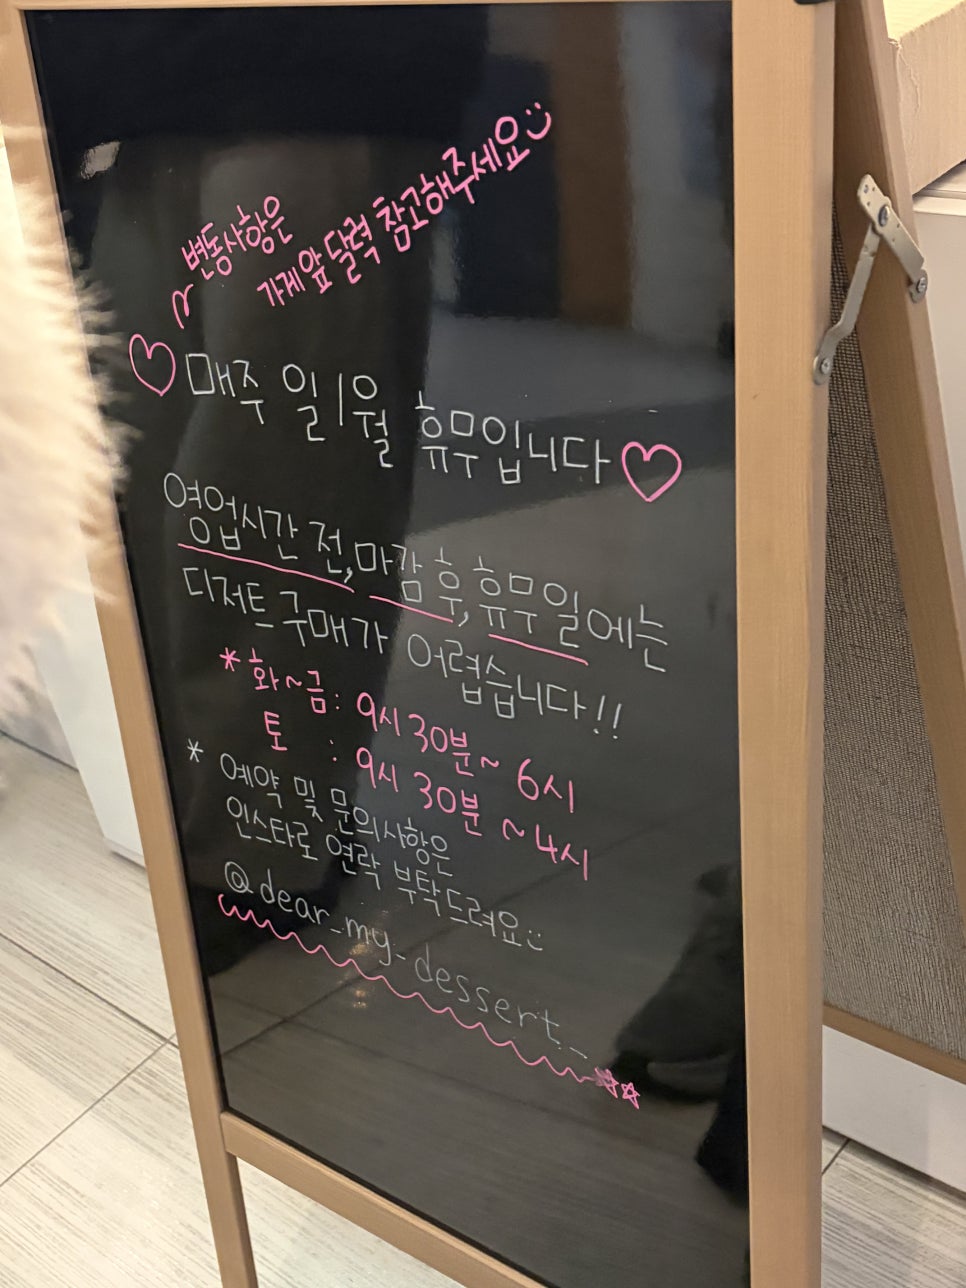 변동사항은
가게 앞 달력 참고해주세요
매주 일/월 휴무입니다
영업시간 전, 마감 후, 휴무일에는
디저트 구매가 어렵습니다!!
* 화~금 : 9시 30분 ~ 6시
토 : 9시 30분 ~ 4시
* 예약 및 문의사항은
인스타로 연락 부탁드려요
@dear_my_dessert_